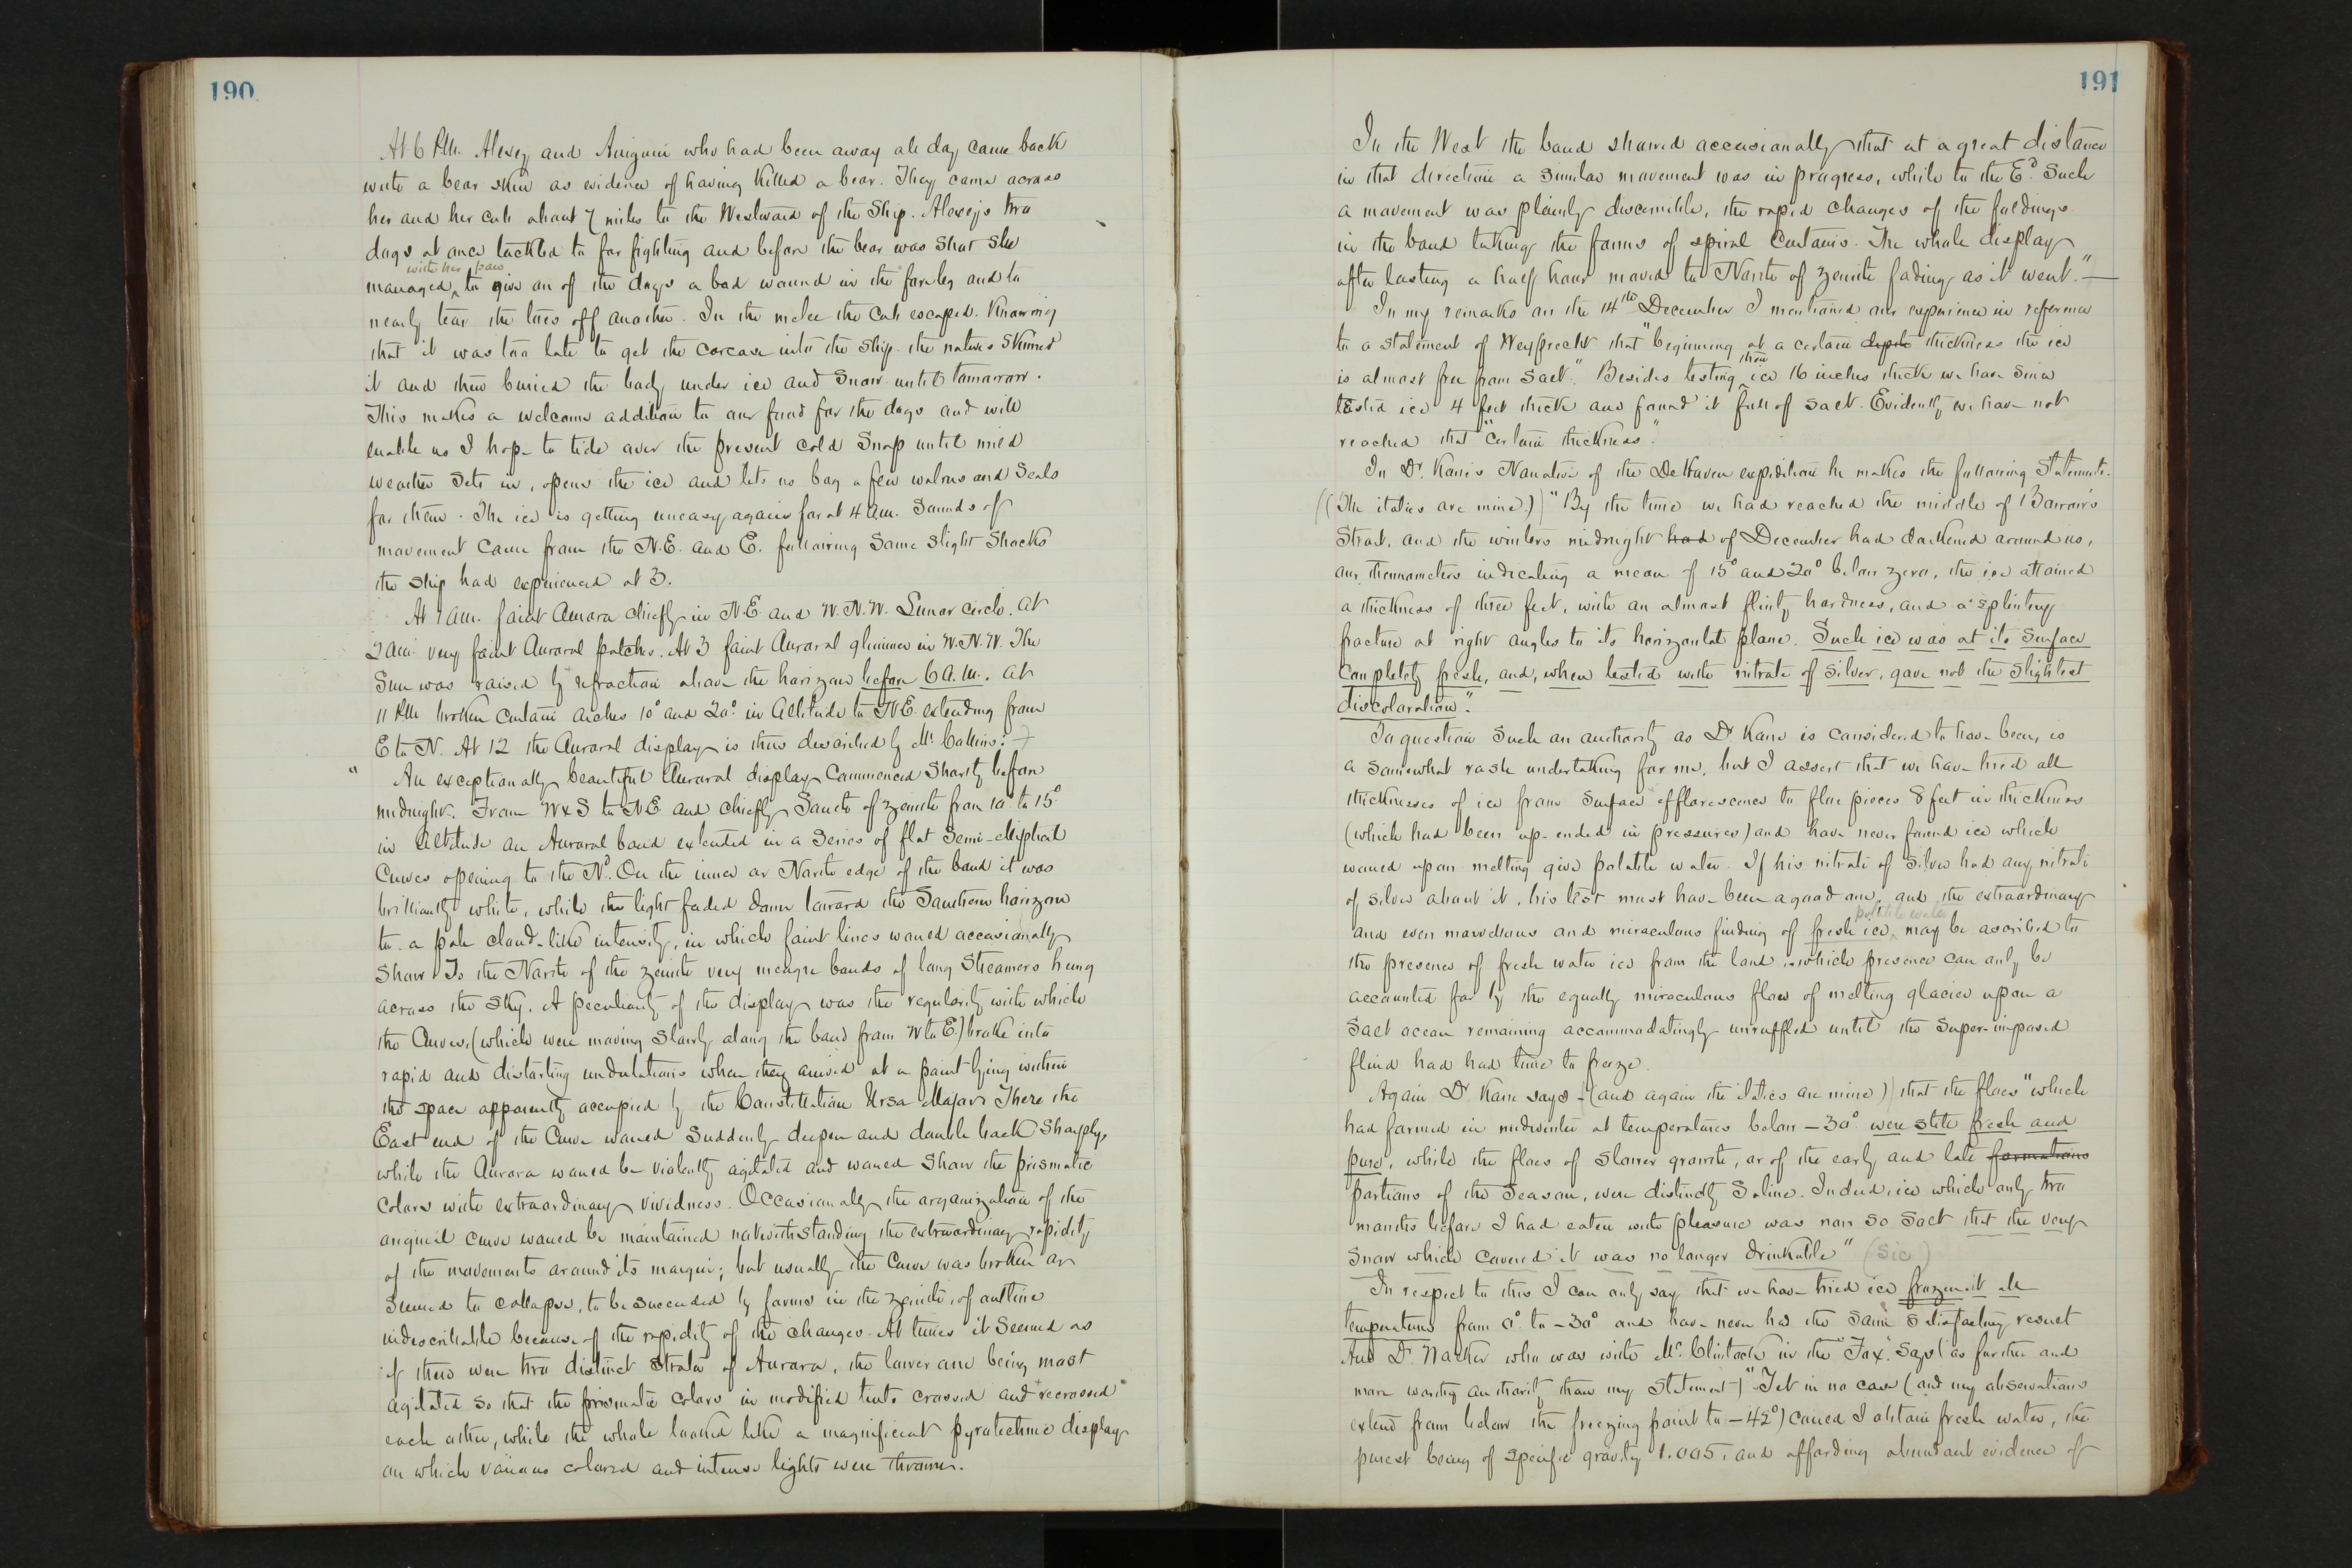 190
At 6 P.M. Alexey and Aniguin who had been away all day came back
with a bear skin as evidence of having killed a bear. They came across
her and her cub about 7 miles to the Westward of the Ship. Alexey's two
dogs at once tackled to for fighting and before the bear was shot she
with her paw
managed ^ to give on of the dogs a bad wound in the foreleg and to
nearly tear the toes off another. In the melee the cub escaped. Knowing
that it was too late to get the carcase into the Ship the natives skinned
it and then buried the body under ice and snow until tomorrow.
This makes a welcome addition to our food for the dogs and will
enable us I hope to tide over the present cold snap until mild
weather sets in, opens the ice and lets us bag a few walrus and seals
for them. The ice is getting uneasy again for at 4 a.m. sounds of
movement came from the N.E. and E. following some slight shocks
the ship had experienced at 3.
At 1 am. faint Aurora chiefly in N.E. and W.N.W. Lunar circle. At
2 am. very faint Auroral patches. At 3 faint Auroral glimmer in W.N.W. The
Sun was raised by refraction above the horizon before 6 A.M. At
11 PM broken curtain arches 10° and 20° in Altitude to N.E. extending from
E to N. At 12 the Auroral display is thus described by Mr. Collins:
" An exceptionally beautiful Auroral display commenced shortly before
midnight. From W x S to N E and chiefly South of zenith from 10° to 15°
in Altitude an Auroral band extended in a series of flat semi-elliptical
curves opening to the Nd. On the inner or North edge of the band it was
brilliantly white, while the light faded down toward the Southern horizon
to a pale cloud-like intensity, in which faint lines would occasionally
show To the North of the zenith very meagre bands of long streamers hung
across the sky. A peculiarity of the display was the regularity with which
the curves, (which were moving slowly along the band from W to E.) broke into
rapid and distorting undulations when they arrived at a point lying within
the space apparently occupied by the Constellation Ursa Major. There the
East end of the curve would suddenly deepen and double back sharply,
while the Aurora would be violently agitated and would show the prismatic
colors with extraordinary vividness. Occasionally the organization of the
original curve would be maintained notwithstanding the extraordinary rapidity
of the movements around its margin; but usually the curve was broken or
seemed to collapse, to be succeeded by forms in the zenith, of outline
indescribable because of the rapidity of the changes. At times it seemed as
if there were two distinct strata of Aurora, the lower one being most
agitated so that the prismatic colors in modified tints crossed and recrossed
each other, while the whole looked like a magnificent pyrotechnic display
on which various colored and intense lights were thrown.
191
In the West the band showed occasionally that at a great distance
in that direction a similar movement was in progress, while to the Ed. such
a movement was plainly discernible, the rapid changes of the foldings
in the band taking the forms of spiral curtains. The whole display
after lasting a half hour moved to North of zenith fading as it went."—
In my remarks on the 14th December I mentioned our experience in reference
to a statement of Weyprecht that "beginning at a certain depth thickness the ice
then
is almost free from salt". Besides testing ^ ice 16 inches thick we have since
tested ice 4 feet thick and found it full of salt. Evidently we have not
reached that "certain thickness".
In Dr. Kane's Narrative of the De Haven expedition he makes the following statements.
((The italics are mine.)) "By the time we had reached the middle of Barrow's
Strait, and the winters midnight had of December had darkened around us,
our thermometers indicating a mean of 15° and 20° below zero, the ice attained
a thickness of three feet, with an almost flinty hardness, and a splintery
fracture at right angles to its horizontal plane. Such ice was at its surface
completely fresh, and, when tested with nitrate of silver, gave not the slightest
discoloration".
To question such an authority as Dr Kane is considered to have been, is
a somewhat rash undertaking for me, but I assert that we have tried all
thicknesses of ice from surface efflorescence to floe pieces 8 feet in thickness
(which had been up-ended in pressures) and have never found ice which
would upon melting give potable water. If his nitrate of silver had any nitrate
of silver about it, his test must have been a good one, and the extraordinary
potable water
and even marvelous and miraculous finding of fresh ice ^ may be ascribed to
the presence of fresh water ice from the land, which presence can only be
accounted for by the equally miraculous flow of melting glacier upon a
salt ocean remaining accommodatingly unruffled until the super-imposed
fluid had had time to freeze.
Again Dr Kane says - (and again the italics are mine)) that the floes "which
had formed in midwinter at temperatures below -30° were still fresh and
pure, while the floes of slower growth, or of the early and late formations
portions of the season, were distinctly saline. Indeed, ice which only two
months before I had eaten with pleasure was now so salt that the very
snow which covered it was no longer drinkable" (Sic)
In respect to this I can only say that we have tried ice frozen at all
temperatures from 0° to -30° and have never had the same satisfactory result
And Dr. Walker who was with Mc.Clintock in the "Fox". says (as further and
more worthy authority than my statement) "Yet in no case (and my observations
extend from below the freezing point to -42°) could I obtain fresh water, the
purest being of specific gravity 1.005, and affording abundant evidence of